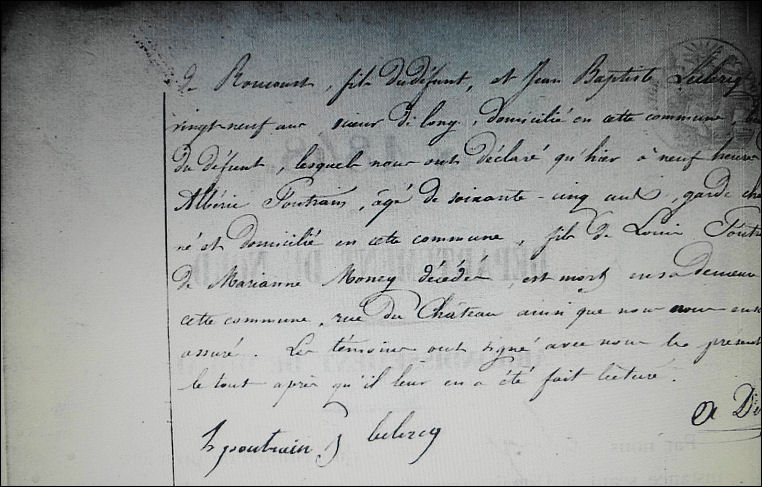 de Roucourt, fils du défunt, et Jean Baptiste Leclercq
vingt-neuf ans scieur de long, domicilié en cette commune,
du défunt, lesquels nous ont déclaré qu'hier à neuf heures
Albéric Poutrain, âgé de soixante-cinq ans, garde
né et domicilié en cette commune, fils de Louis Poutr
de Marianne Moneq décédés, est mort en sa demeure
cette commune, rue du Château ainsi que nous nous en
assuré. Les témoins ont signé avec nous le présent
le tout après qu'il leur en a été fait lecture.
h poutrain J leclercq
A D